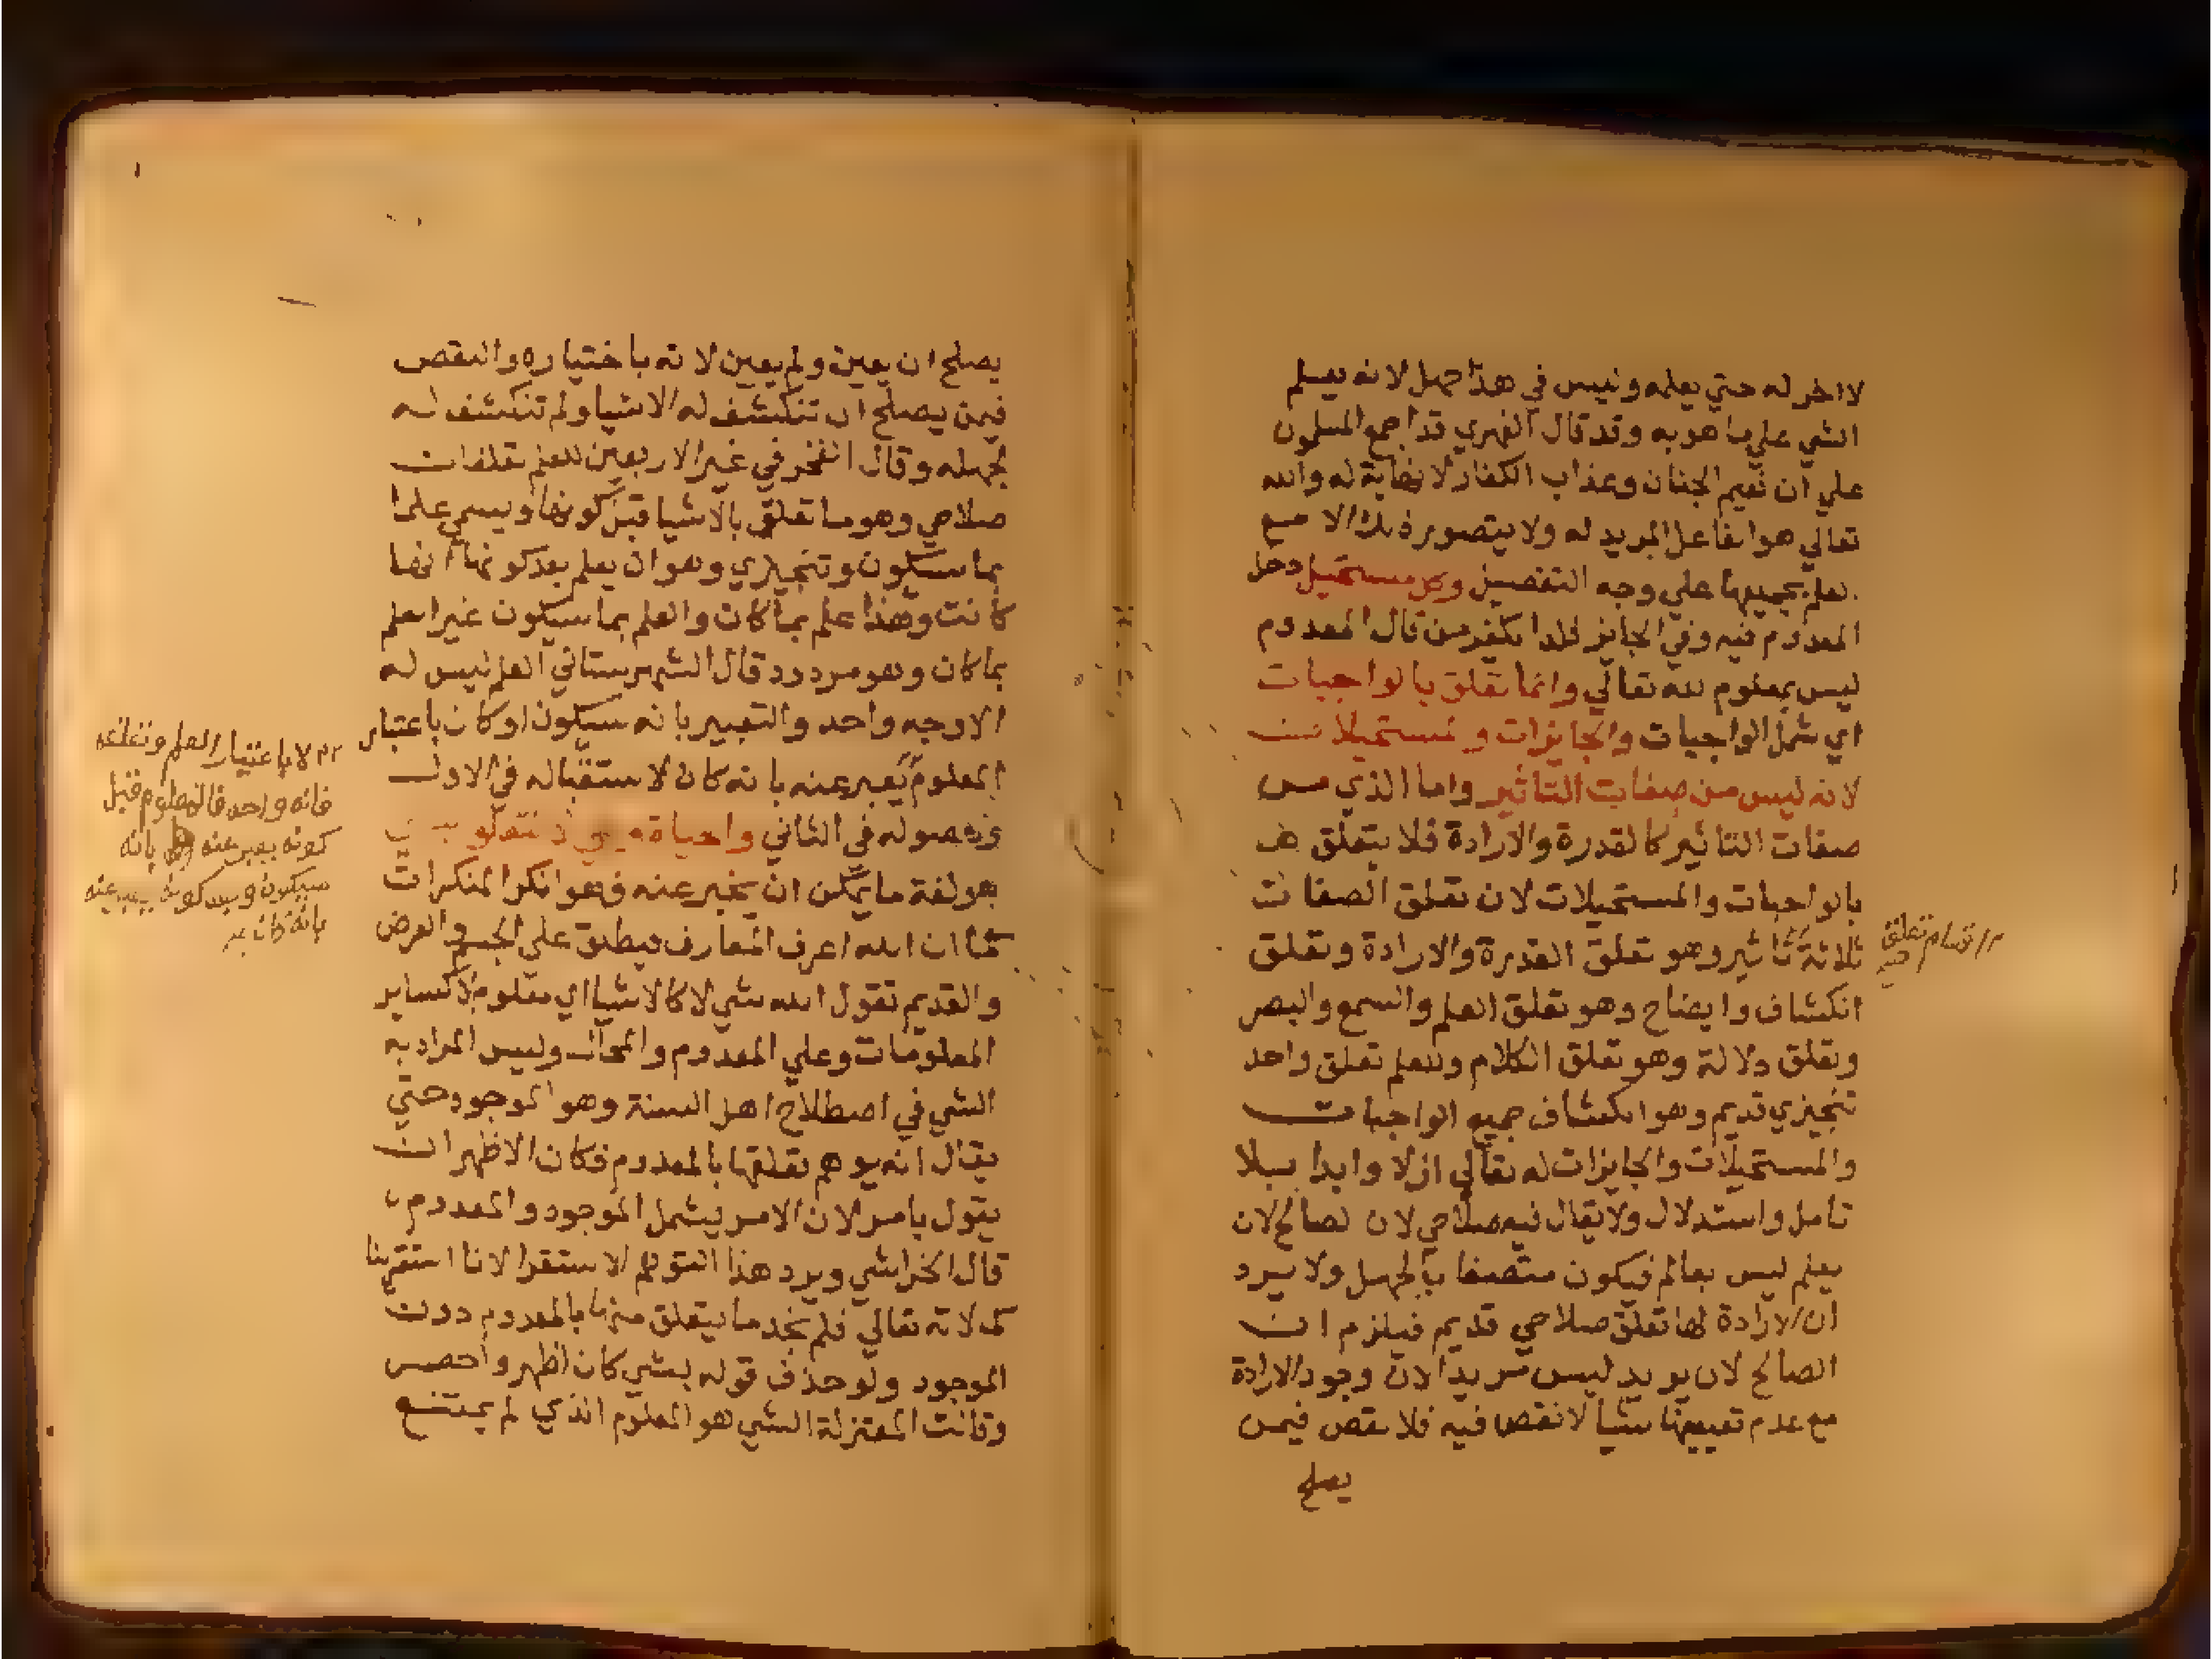 لا اخر له حتي يعلمه وليس في هذا جهل لانه يعلم
الشي علي ما هو به وقد قال الفهري قد اجمع المسلمون
علي ان نعيم الجنان وعذاب الكفار لا نهاية له والله
تعالي هو الفاعل المريد له ولا يتصور ذلك الا مع
العلم بجميعها علي وجه التفصيل وكل مستحيل دخل
المعدوم فيه وفي الجايز فلذا يكفر من قال المعدوم
ليس بمعلوم لله تعالي وانما تعلق بالواجبات
اي شمل الواجبات والجايزات والمستحيلات
لانه ليس من صفات التاثير واما الذي من
صفات التاثير كالقدرة والارادة فلا يتعلق
بالواجبات والمستحيلات لان تعلق الصفات
ثلاثة تاثير وهو تعلق القدرة والارادة وتعلق
انكشاف وايضاح وهو تعلق العلم والسمع والبصر
وتعلق دلالة وهو تعلق الكلام وللعلم تعلق واحد
تنجيزي قديم وهو انكشاف جميع الواجبات
والمستحيلات والجايزات له تعالي ازلا وابدا بلا
تامل واستدلال ولا يقال فيه صلاحي لان الصالح لان
يعلم ليس بعالم فيكون متصفا بالجهل ولا يرد
ان الارادة لها تعلق صلاحي قديم فيلزم ان
الصالح لان يريد ليس مريدا لان وجود الارادة
مع عدم تعيينها شيا لا نقص فيه فلا نقص فيمن
يصلح
اقسام تعلق
يصلح ان يعين ولم يعين لانه باختياره والنقص
فيمن يصلح ان تنكشف له الاشيا ولم تنكشف له
لجهله وقال الفخر في غير الاربعين للعلم تعلقات
صلاحي وهو ما تعلق بالاشيا قبل كونها ويسمي علما
بما سيكون وتنجيزي وهو ان يعلم بعد كونها انها
كانت وهذا علم بما كان والعلم بما سيكون غير العلم
بما كان وهو مردود قال الشهرستاني العلم ليس له
الا وجه واحد والتعبير بانه سيكون او كان باعتبار
المعلوم يعبر عنه بانه كان لاستقباله في الاول
وحصوله في الثاني والحياة وهي لا تتعلق بشي
هو لغة ما يمكن ان يخبر عنه فهو انكر المنكرات
كما ان الله اعرف المعارف فيطلق علي الجسم والعرض
والقديم تقول الله شي لا كالاشيا اي معلوم لا كساير
المعلومات وعلي المعدوم والمحال وليس المراد به
الشي في اصطلاح اهل السنة وهو الموجود حتي
يقال انه يوهم تعلقها بالمعدوم فكان الاظهر ان
يقول بامر لان الامر يشمل الموجود والمعدوم
قال الخراشي ويرد هذا التوهم الاستقرا لانا استقرينا
كمالاته تعالي فلم نجد ما يتعلق منها بالمعدوم دون
الموجود ولو حذف قوله بشي كان اظهر واخصر
وقالت المعتزلة الشي هو المعلوم الذي لم يمتنع
لا باعتبار العلم وتعلقه
فانه واحد فالمعلوم قبل
كونه يعبر عنه بانه
سيكون وبعد كونه يعبر عنه
بانه كان